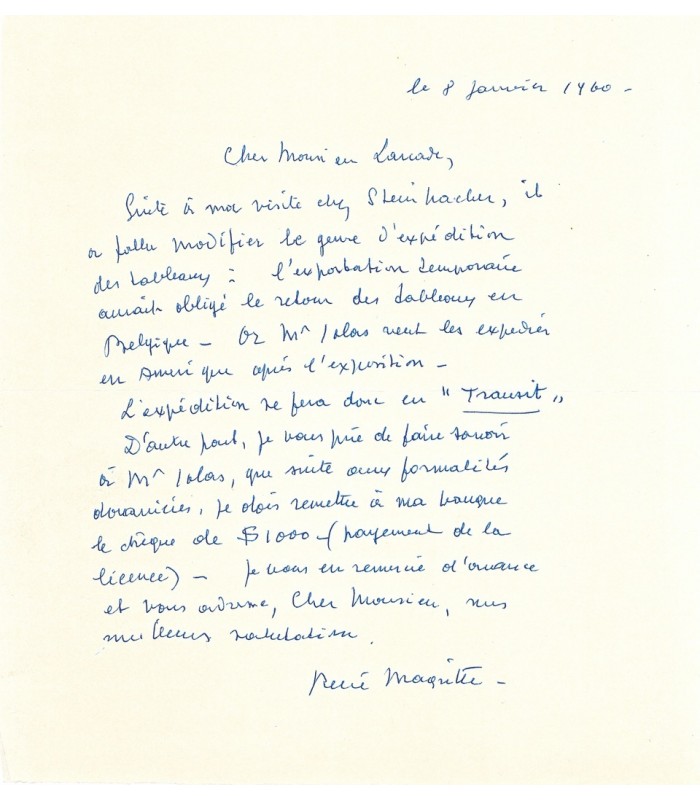 le 8 Janvier 1960 -
Cher Monsieur
Suite à ma visite chez Steinhacher, il
a fallu modifier le genre d'expédition
des tableaux : l'exportation temporaire
aurait obligé le retour des tableaux en
Belgique - Or Mr Iolas veut les expédier
en Amérique après l'exposition -
L'expédition se fera donc en " Transit "
D'autre part, je vous prie de faire savoir
à Mr Iolas, que suite aux formalités
douanières, je dois remettre à ma banque
le chèque de $1000 - (payement de la
licence) - Je vous en remercie d'avance
et vous adresse, Cher Monsieur, mes
meilleures salutations.
René Magritte -